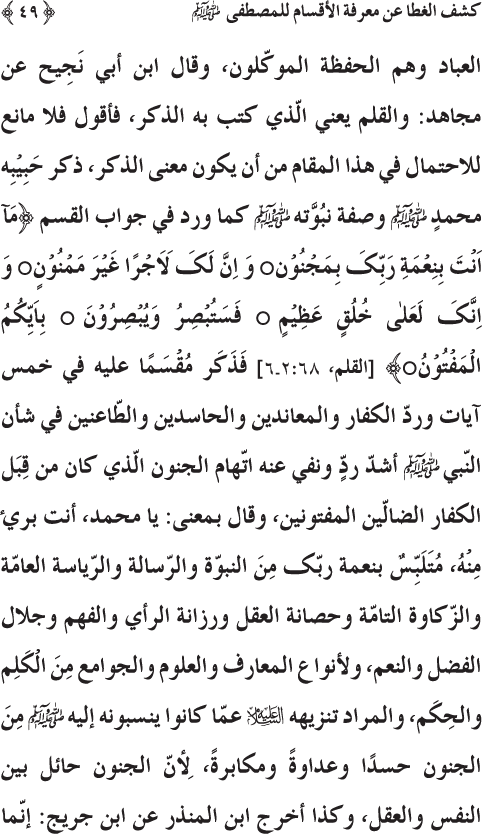 كشف الغطا عن معرفة الأقسام للمصطفى ﷺ ﴿ ٤٩ ﴾
العباد وهم الحفظة الموكّلون، وقال ابن أبي نَجِيح عن
مجاهد: والقلم يعني الّذي كتب به الذكر، فأقول فلا مانع
للاحتمال في هذا المقام من أن يكون معنى الذكر، ذكر حَبِيْبِه
محمدٍ ﷺ وصفة نبُوَّته ﷺ كما ورد في جواب القسم ﴿مَآ
اَنْتَ بِنِعْمَةِ رَبِّکَ بِمَجْنُوْن○ وَ اِنَّ لَکَ لَاَجْرًا غَيْرَ مَمْنُوْنٍ○ وَ
اِنَّکَ لَعَلٰى خُلُقٍ عَظِيْمٍ ○ فَسَتُبْصِرُ وَيُبْصِرُوْنَ ○ بِاَيِّكُمُ
الْمَفْتُوْنُ○﴾ [القلم، ٦٨:٢ـ٦] فَذَكَر مُقْسَمًا عليه في خمس
آيات وردّ الكفار والمعاندين والحاسدين والطّاعنين في شأن
النّبي ﷺ أشدّ ردٍّ ونفي عنه اتّهام الجنون الّذي كان من قِبَل
الكفار الضالّين المفتونين، وقال بمعنى: يا محمد، أنت برئ
مِنْهُ، مُتَلَبِّسٌ بنعمة ربّک مِنَ النبوّة والرّسالة والرّياسة العامّة
والزّكاوة التامّة وحصانة العقل ورزانة الرأي والفهم وجلال
الفضل والنعم، ولأنواع المعارف والعلوم والجوامع مِنَ الْكَلِم
والحِكَم، والمراد تنزيهه عليه السلام عمّا كانوا ينسبونه إليه ﷺ مِنَ
الجنون حسدًا وعداوةً ومكابرةً، لِأنّ الجنون حائل بين
النفس والعقل، وكذا أخرج ابن المنذر عن ابن جريج: إنّما